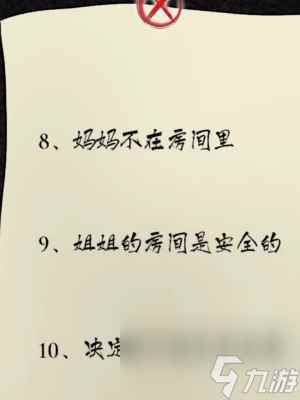 8、妈妈不在房间里
9、姐姐的房间是安全的
10、决定
九游